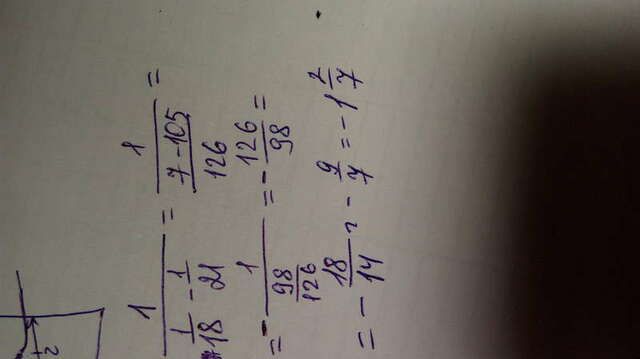 1/(1/18 - 1/21) = 1/((7-105)/126) =
= - 1/(98/126) = - 126/98 =
= - 18/14 = - 9/7 = - 1 2/7